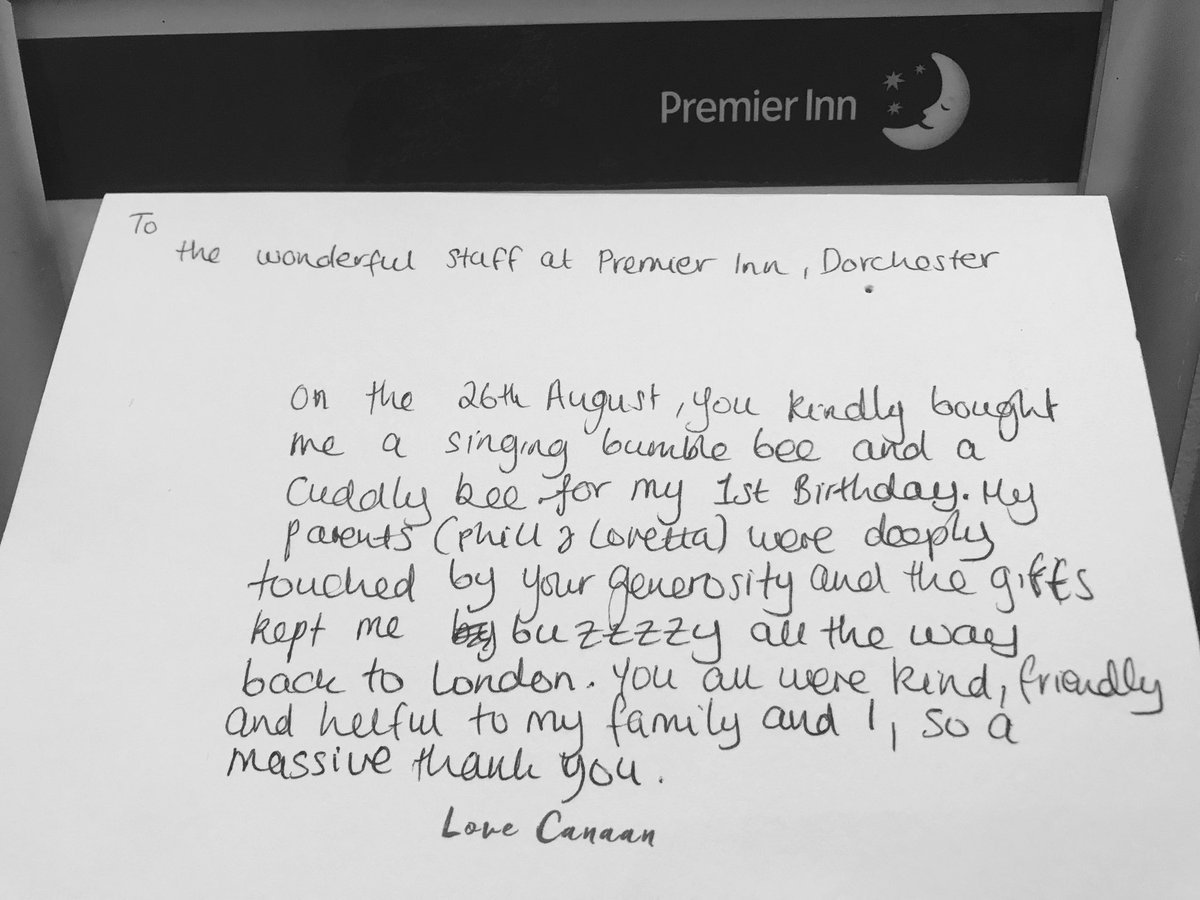 Premier Inn
To
the wonderful staff at Premier Inn, Dorchester
On the 26th August, you kindly bought
me a singing bumble bee and a
Cuddly bee for my 1st Birthday. My
parents (Phill & Loretta) were deeply
touched by your generosity and the gifts
kept me buzzzzy all the way
back to London. You all were kind, friendly
and helful to my family and I, so a
massive thank you.
Love Canaan